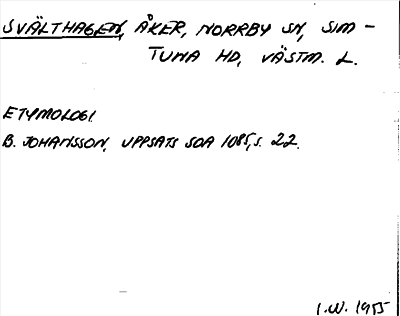 SVÄLTHAGEN, ÅKER, NORRBY SN, SIM-
TUNA HD, VÄSTM. L.
ETYMOLOGI
B. JOHANSSON, UPPSATS SOA 1085, s. 22.
I.W. 1955